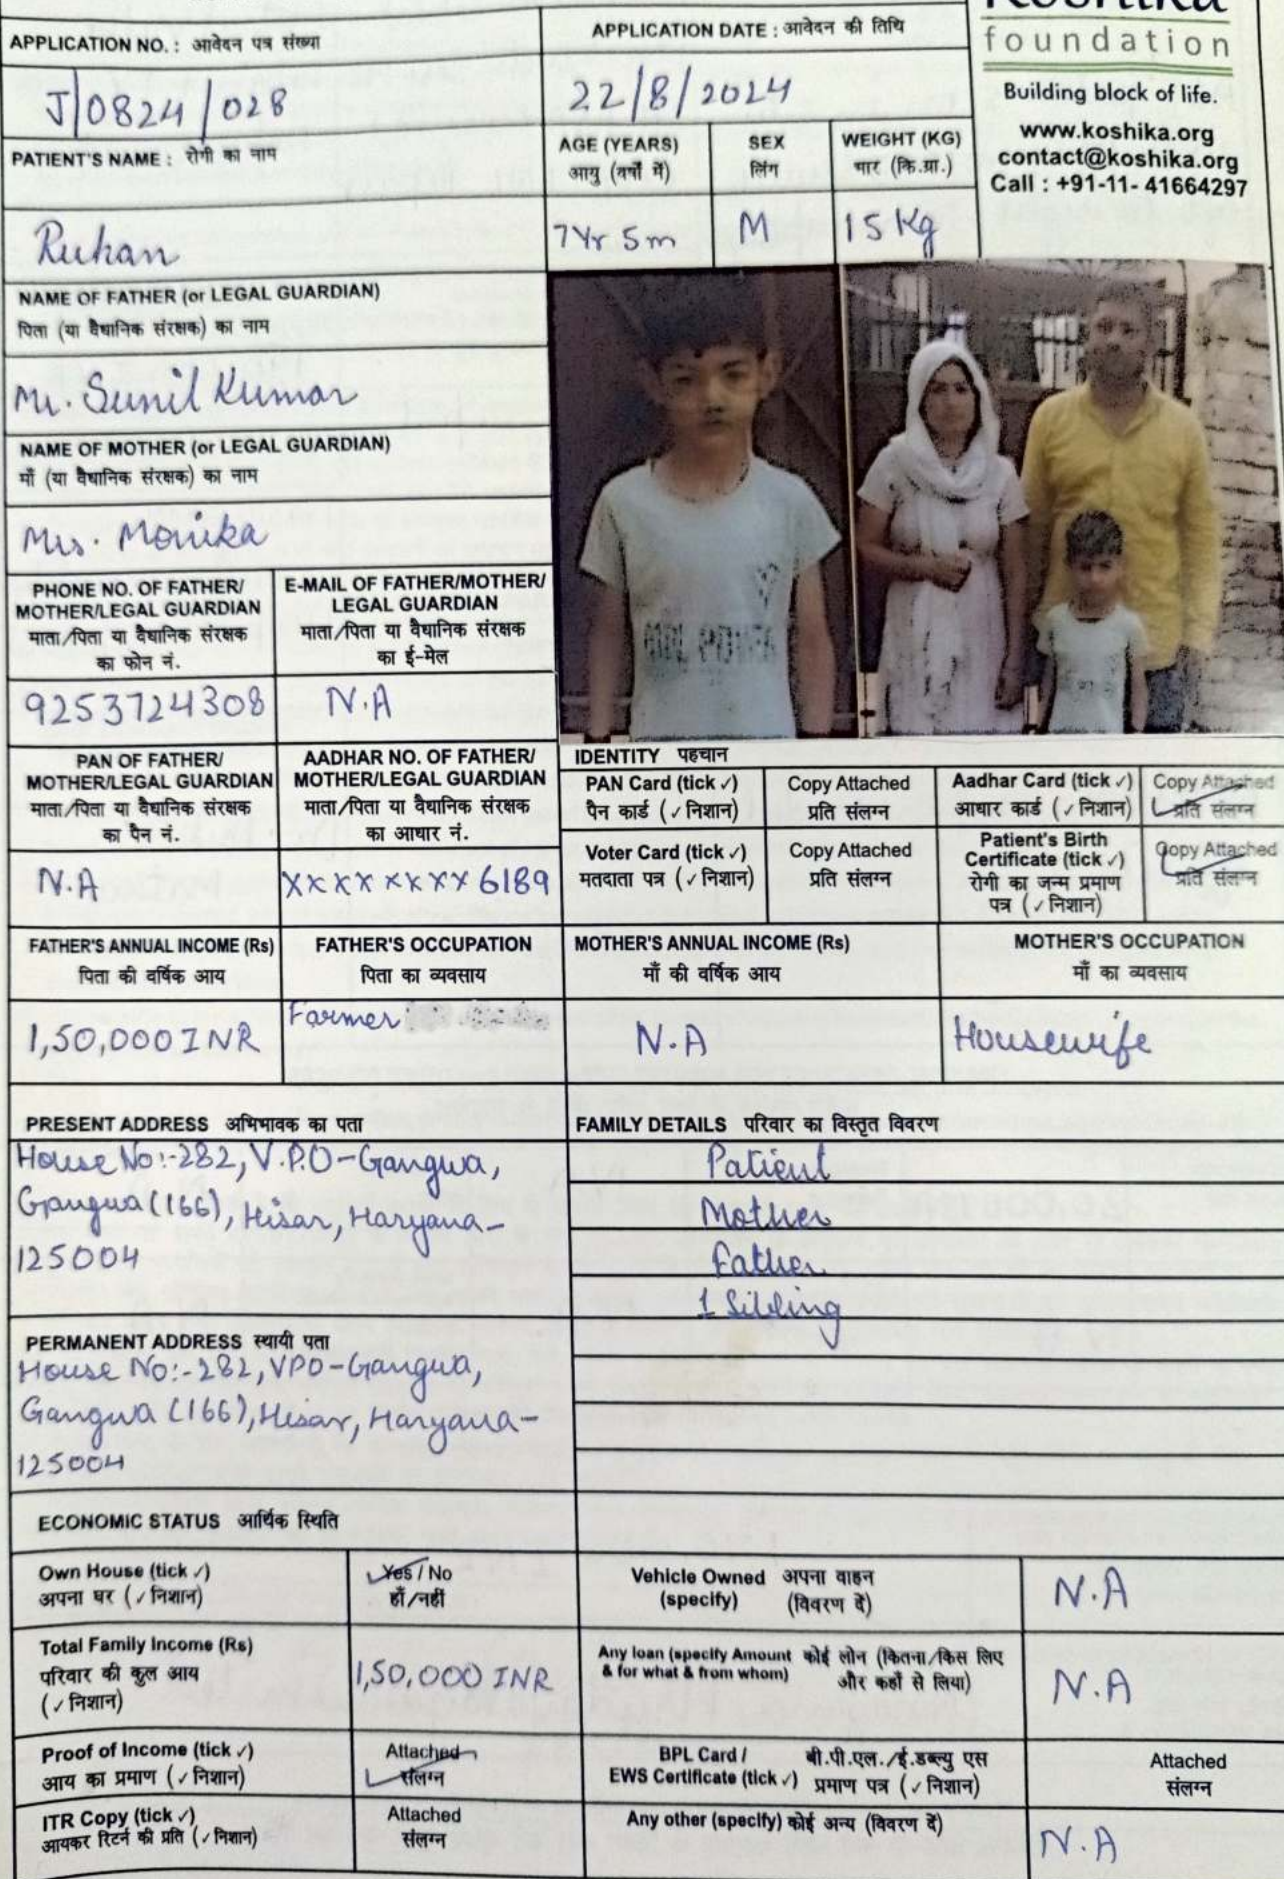 Koshika
foundation
Building block of life.
www.koshika.org
contact@koshika.org
Call : +91-11- 41664297
APPLICATION NO. : आवेदन पत्र संख्या
APPLICATION DATE : आवेदन की तिथि
J/0824/028
22/8/2024
PATIENT'S NAME : रोगी का नाम
AGE (YEARS)
आयु (वर्षों में)
SEX
लिंग
WEIGHT (KG)
भार (कि.ग्रा.)
Ruhan
7Yr 5m
M
15 Kg
NAME OF FATHER (or LEGAL GUARDIAN)
पिता (या वैधानिक संरक्षक) का नाम
Mr. Sunil Kumar
NAME OF MOTHER (or LEGAL GUARDIAN)
माँ (या वैधानिक संरक्षक) का नाम
Mrs. Monika
PHONE NO. OF FATHER/
MOTHER/LEGAL GUARDIAN
माता/पिता या वैधानिक संरक्षक
का फोन नं.
E-MAIL OF FATHER/MOTHER/
LEGAL GUARDIAN
माता/पिता या वैधानिक संरक्षक
का ई-मेल
9253724308
N.A
PAN OF FATHER/
MOTHER/LEGAL GUARDIAN
माता/पिता या वैधानिक संरक्षक
का पैन नं.
AADHAR NO. OF FATHER/
MOTHER/LEGAL GUARDIAN
माता/पिता या वैधानिक संरक्षक
का आधार नं.
N.A
XXXX XXXX 6189
IDENTITY पहचान
PAN Card (tick ✓)
पैन कार्ड (✓ निशान)
Copy Attached
प्रति संलग्न
Aadhar Card (tick ✓)
आधार कार्ड (✓ निशान)
Copy Attached
प्रति संलग्न
Voter Card (tick ✓)
मतदाता पत्र (✓ निशान)
Copy Attached
प्रति संलग्न
Patient's Birth
Certificate (tick ✓)
रोगी का जन्म प्रमाण
पत्र (✓ निशान)
Copy Attached
प्रति संलग्न
FATHER'S ANNUAL INCOME (Rs)
पिता की वर्षिक आय
FATHER'S OCCUPATION
पिता का व्यवसाय
MOTHER'S ANNUAL INCOME (Rs)
माँ की वर्षिक आय
MOTHER'S OCCUPATION
माँ का व्यवसाय
1,50,000 INR
Farmer
N.A
Housewife
PRESENT ADDRESS अभिभावक का पता
House No:-282, V.P.O-Gangwa,
Gangwa (166), Hisar, Haryana-
125004
FAMILY DETAILS परिवार का विस्तृत विवरण
Patient
Mother
Father
1 Sibling
PERMANENT ADDRESS स्थायी पता
House No:-282, VPO-Gangwa,
Gangwa (166), Hisar, Haryana-
125004
ECONOMIC STATUS आर्थिक स्थिति
Own House (tick ✓)
अपना घर (✓ निशान)
Yes / No
हाँ/नहीं
Vehicle Owned अपना वाहन
(specify) (विवरण दें)
N.A
Total Family Income (Rs)
परिवार की कुल आय
(✓ निशान)
1,50,000 INR
Any loan (specify Amount कोई लोन (कितना/किस लिए
& for what & from whom) और कहाँ से लिया)
N.A
Proof of Income (tick ✓)
आय का प्रमाण (✓ निशान)
Attached
संलग्न
BPL Card / बी.पी.एल./ई.डब्ल्यु एस
EWS Certificate (tick ✓) प्रमाण पत्र (✓ निशान)
Attached
संलग्न
ITR Copy (tick ✓)
आयकर रिटर्न की प्रति (✓ निशान)
Attached
संलग्न
Any other (specify) कोई अन्य (विवरण दें)
N.A